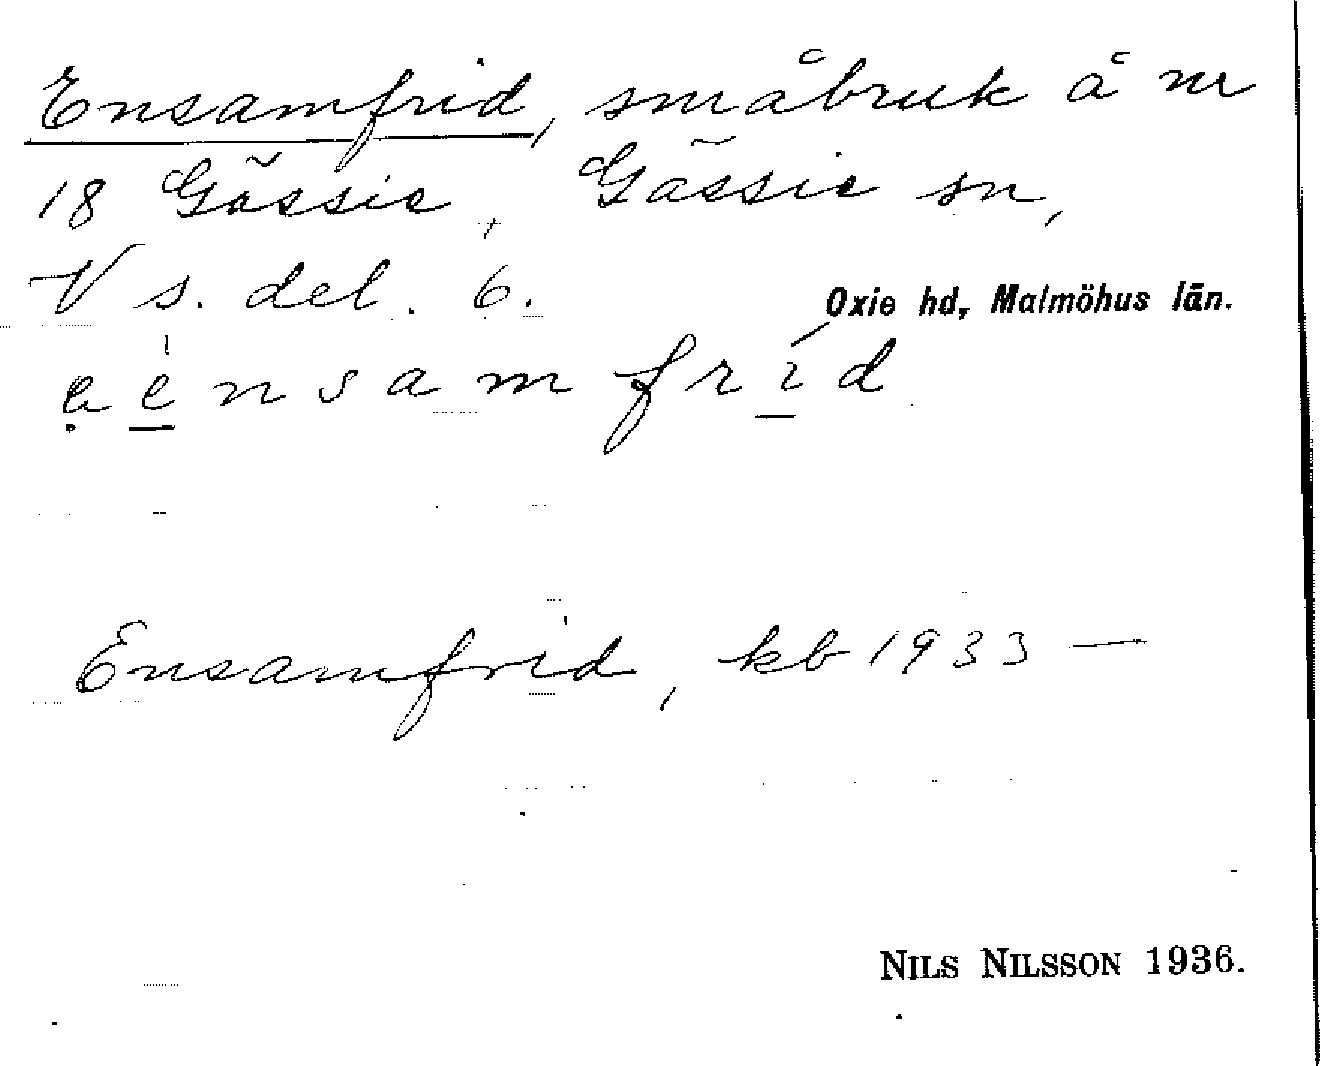 Ensamfrid, småbruk å nr
18 Gässie, Gässie sn,
V s. del. 6.
Oxie hd, Malmöhus län.
Ensamfrid, kb 1933 —
NILS NILSSON 1936.